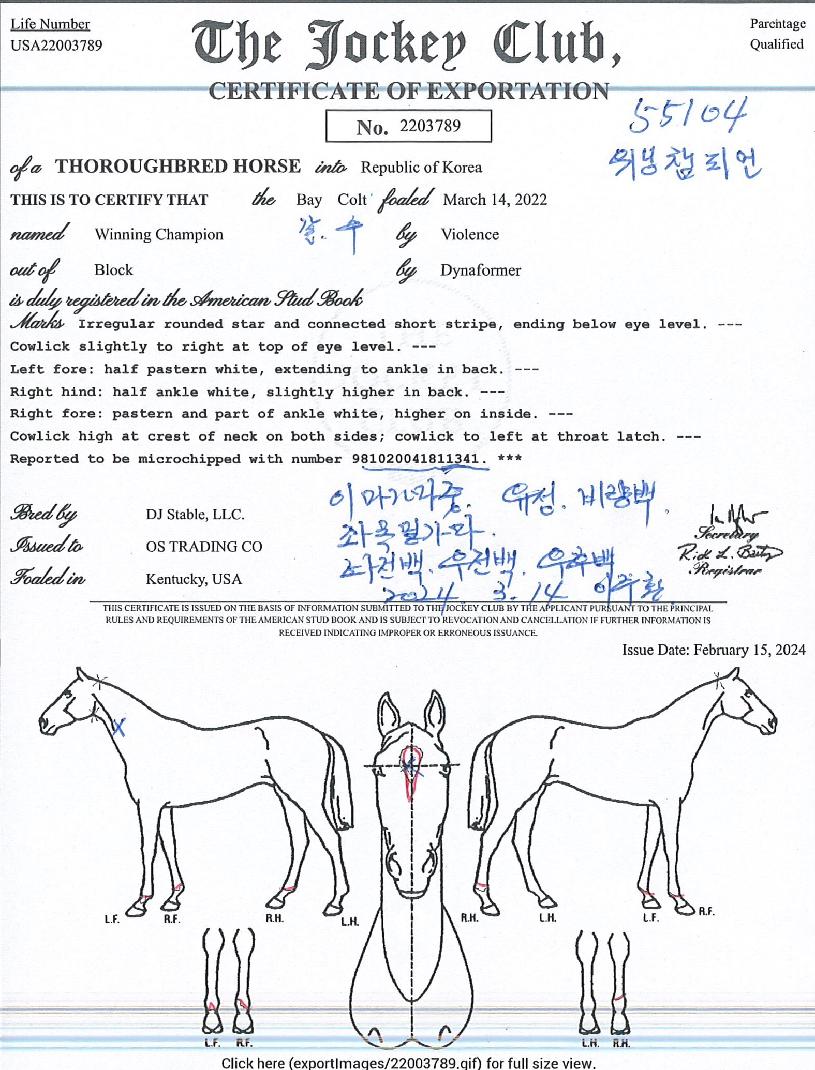 Life Number
USA22003789
The Jockey Club,
Parentage
Qualified
CERTIFICATE OF EXPORTATION
No. 2203789
55104
위닝챔피언
of a THOROUGHBRED HORSE into Republic of Korea
THIS IS TO CERTIFY THAT the Bay Colt foaled March 14, 2022
named Winning Champion 갈. 수 by Violence
out of Block by Dynaformer
is duly registered in the American Stud Book
Marks Irregular rounded star and connected short stripe, ending below eye level. ---
Cowlick slightly to right at top of eye level. ---
Left fore: half pastern white, extending to ankle in back. ---
Right hind: half ankle white, slightly higher in back. ---
Right fore: pastern and part of ankle white, higher on inside. ---
Cowlick high at crest of neck on both sides; cowlick to left at throat latch. ---
Reported to be microchipped with number 981020041811341. ***
유성. 비량백.
Bred by DJ Stable, LLC.
Secretary
Issued to OS TRADING CO
좌전백. 우전백. 우후백
Registrar
Foaled in Kentucky, USA
2024 3. 14
THIS CERTIFICATE IS ISSUED ON THE BASIS OF INFORMATION SUBMITTED TO THE JOCKEY CLUB BY THE APPLICANT PURSUANT TO THE PRINCIPAL
RULES AND REQUIREMENTS OF THE AMERICAN STUD BOOK AND IS SUBJECT TO REVOCATION AND CANCELLATION IF FURTHER INFORMATION IS
RECEIVED INDICATING IMPROPER OR ERRONEOUS ISSUANCE.
Issue Date: February 15, 2024
L.F. R.F. R.H. L.H. R.H. L.H. L.F. R.F.
L.F. R.F. L.H. R.H.
Click here (exportImages/22003789.gif) for full size view.